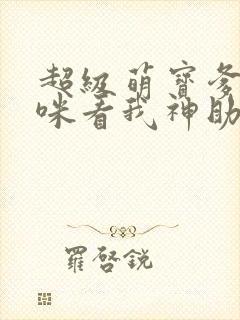 超级萌宝爹
咪看我神助
羅啓銳